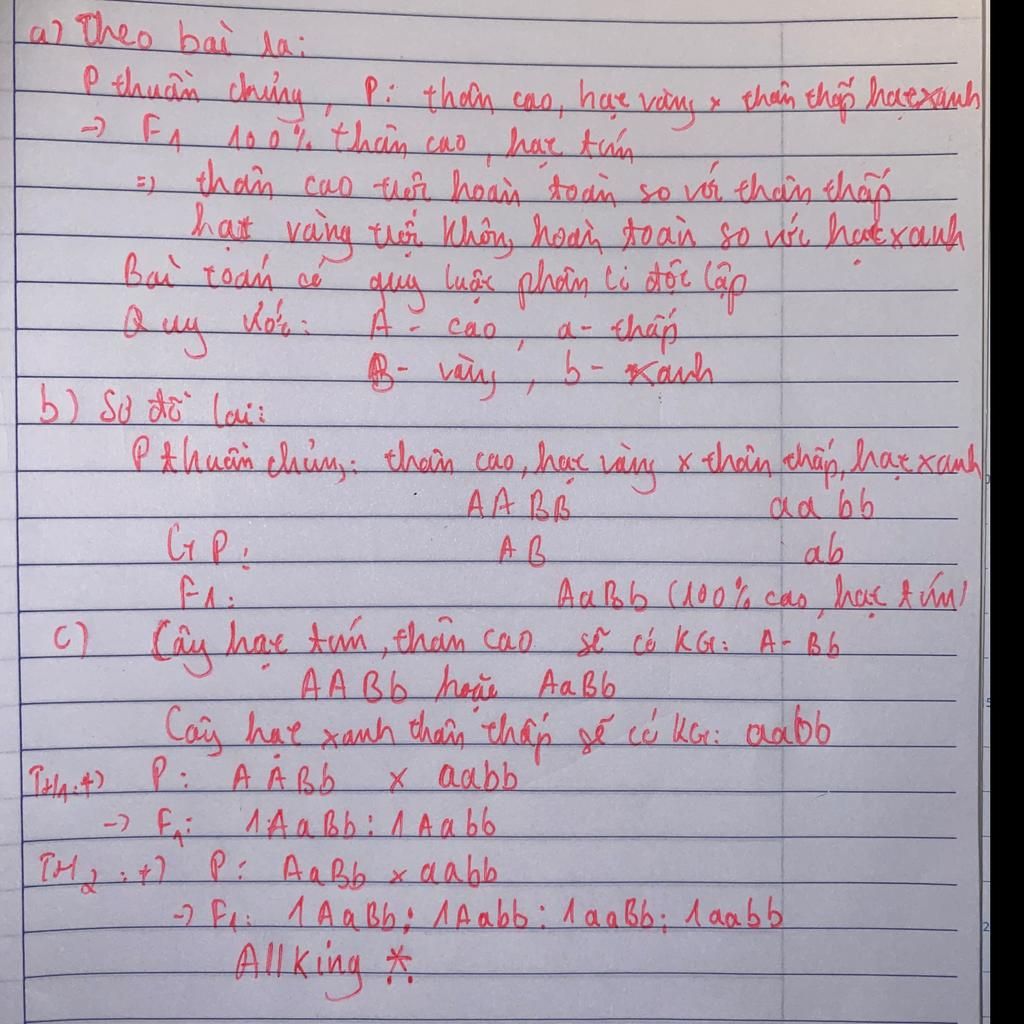 a) Theo bài ra:
P thuần chủng, P: thân cao, hạt vàng x thân thấp hạt xanh
→ F1 100% thân cao, hạt tím
=> thân cao trội hoàn toàn so với thân thấp
hạt vàng trội không hoàn toàn so với hạt xanh
Bài toán có quy luật phân li độc lập
Quy ước: A - cao, a - thấp
B - vàng, b - xanh
b) Sơ đồ lai:
P thuần chủng: thân cao, hạt vàng x thân thấp, hạt xanh
AABB aabb
G P: AB ab
F1: AaBb (100% cao, hạt tím)
c) Cây hạt tím, thân cao sẽ có KG: A- Bb
AABb hoặc AaBb
Cây hạt xanh thân thấp sẽ có KG: aabb
TH1: +) P: AABb x aabb
→ F1: 1AaBb : 1Aabb
TH2: +) P: AaBb x aabb
→ F1: 1AaBb : 1Aabb : 1aaBb : 1aabb
Allking